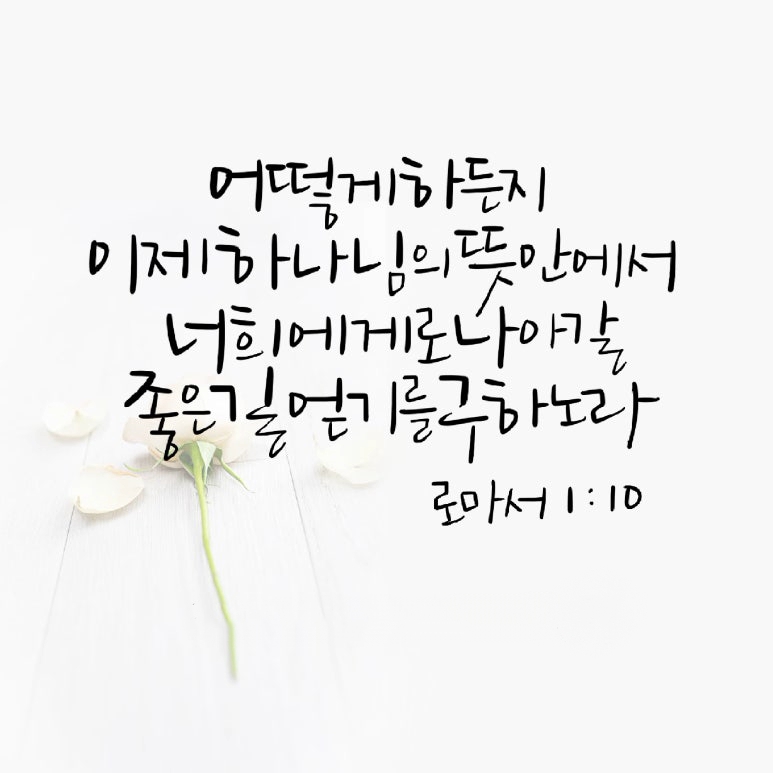 어떻게하든지
이제하나님의뜻안에서
너희에게로나아갈
좋은길얻기를구하노라
로마서 1:10